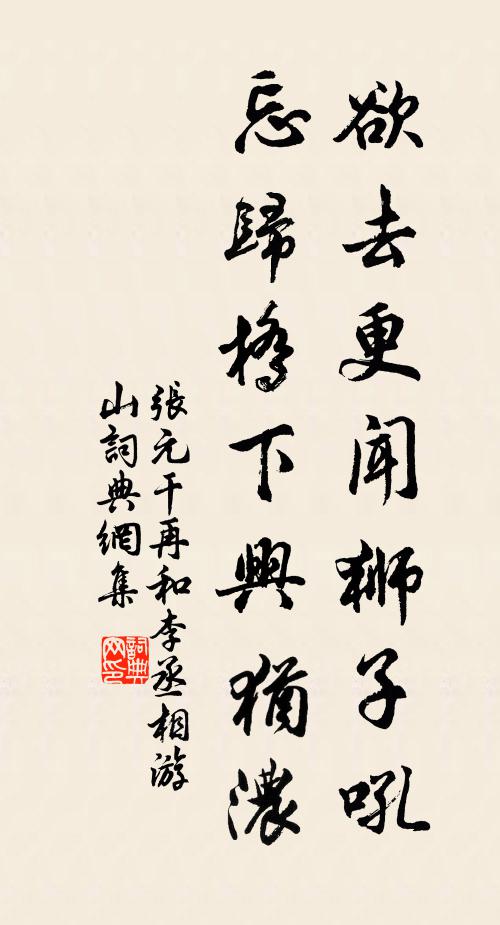 欲去更聞獅子吼
忘歸橋下興猶濃
張元干再和李丞相游
山詞典網集
詞典
网印